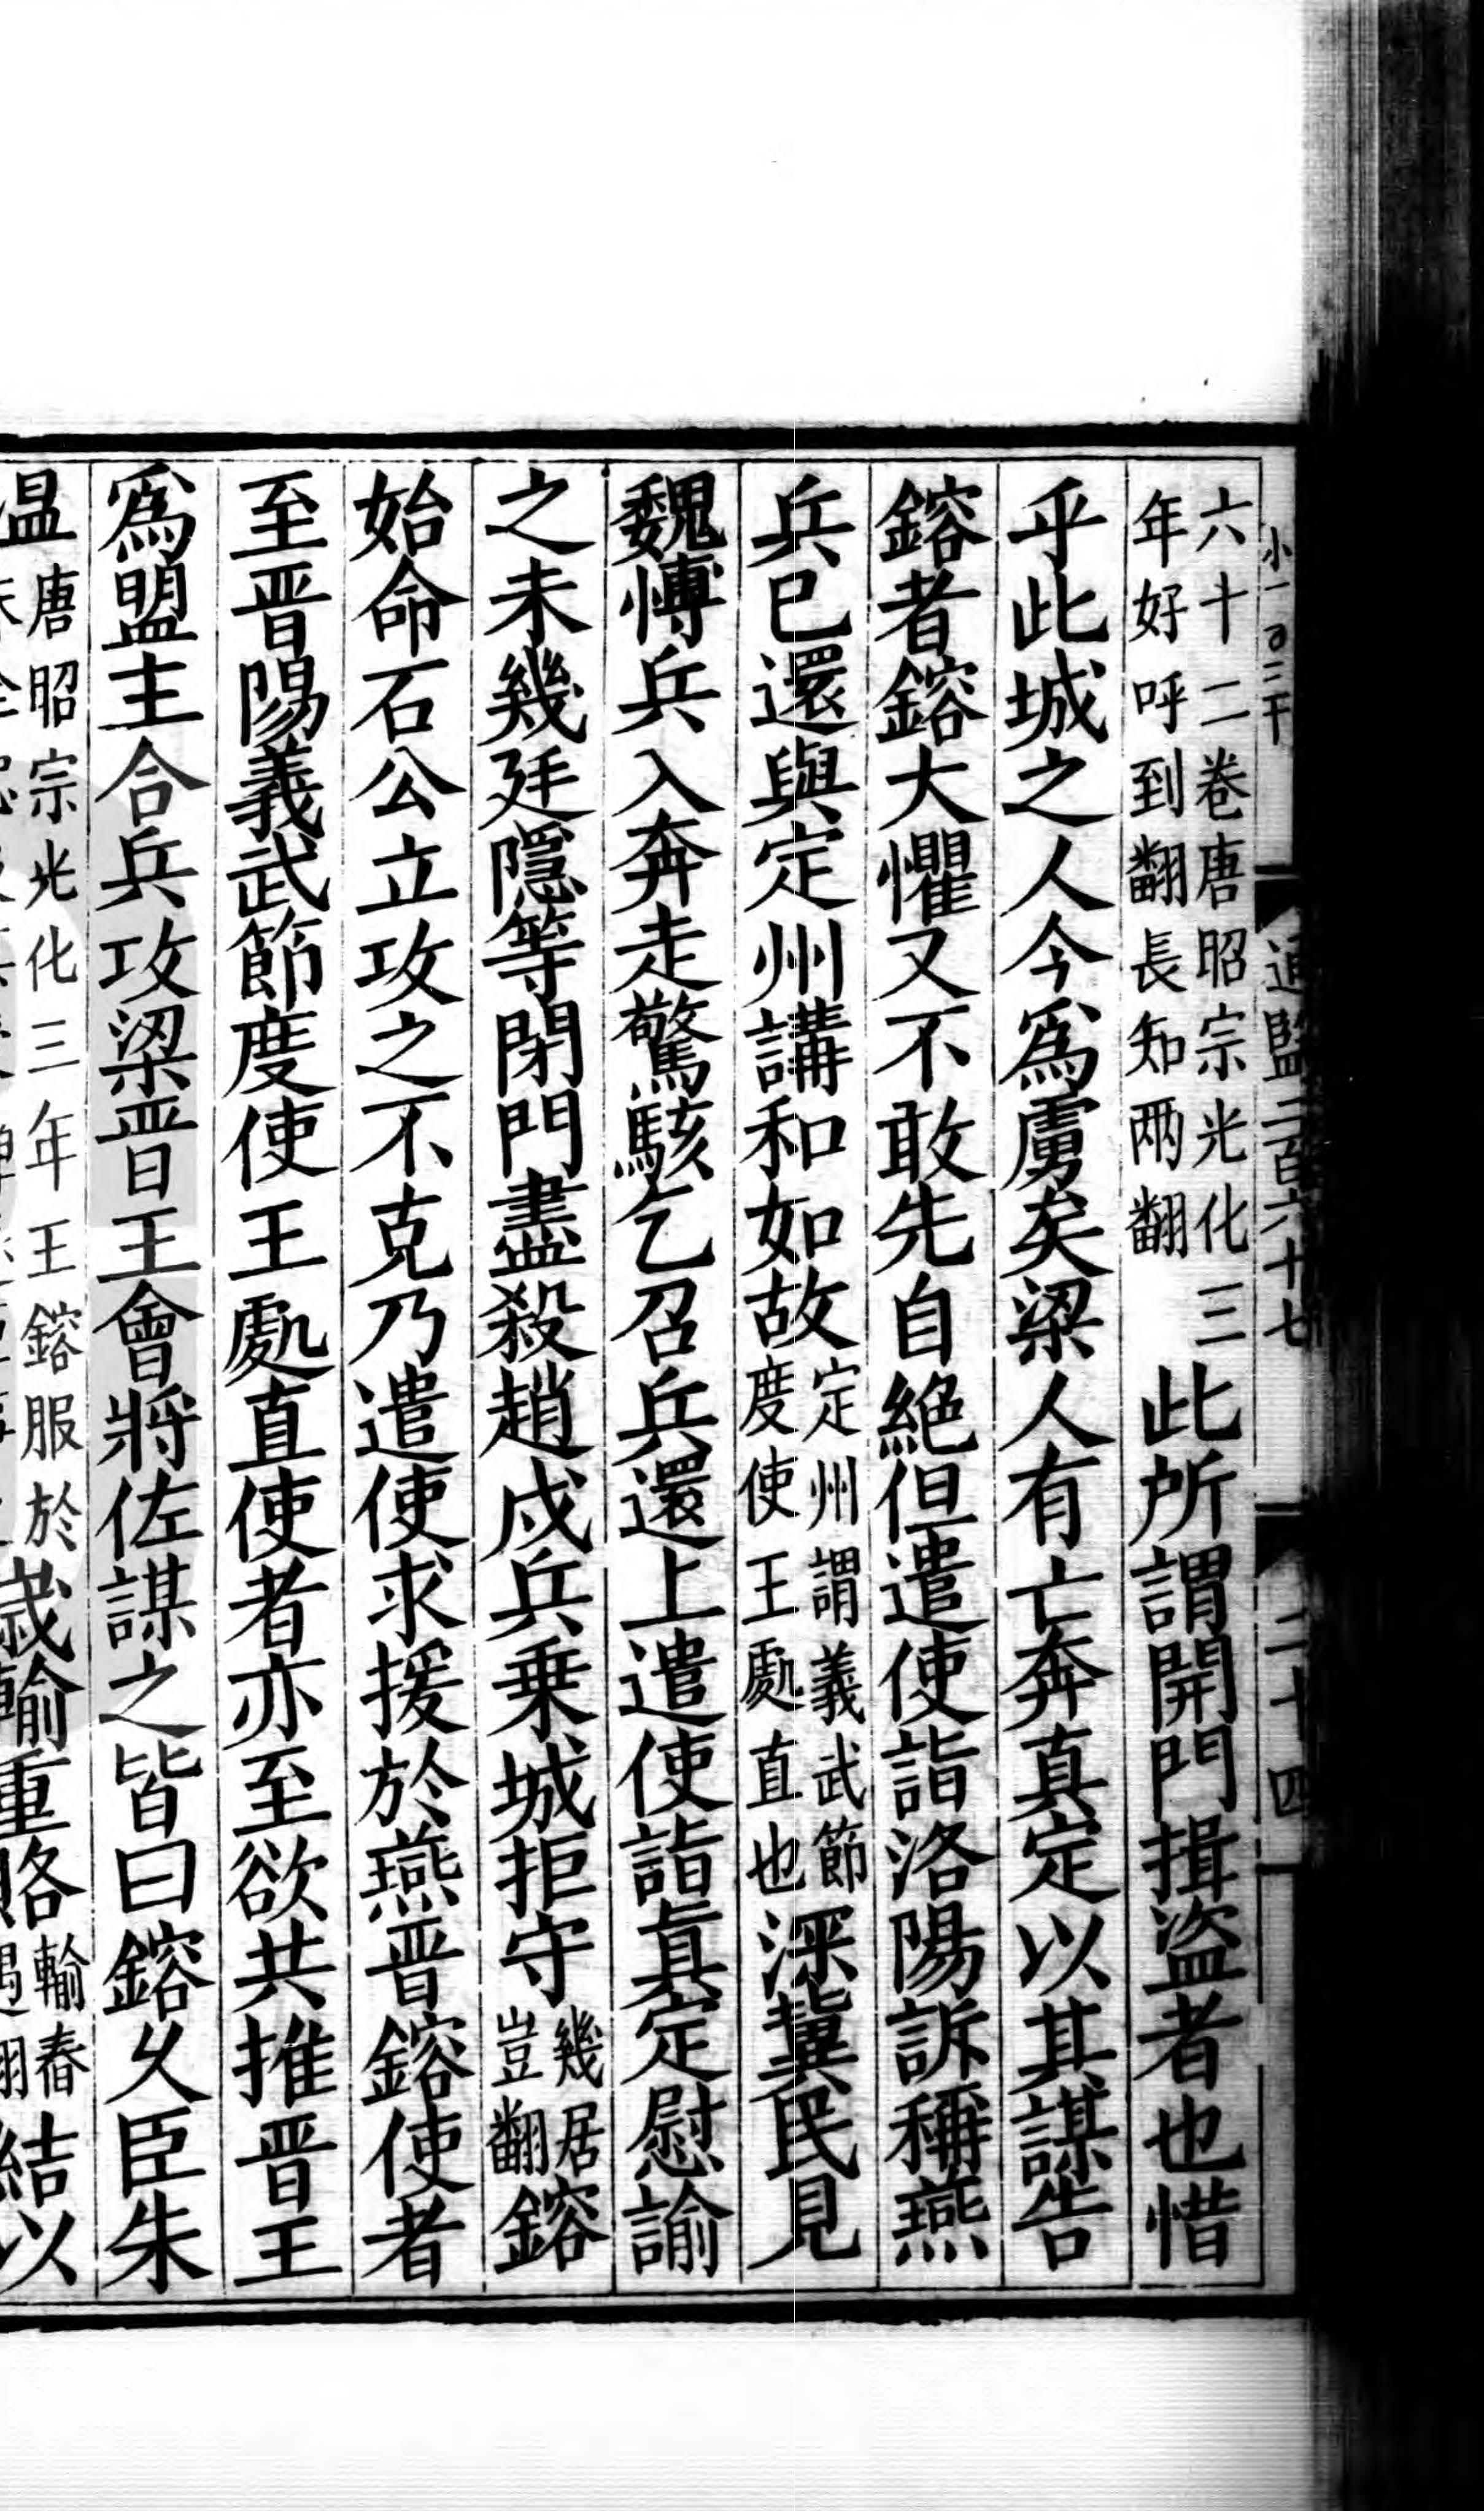 六十二卷唐昭宗光化三
年好呼到翻長知两翻
此所謂開門揖盗者也惜
乎此城之人今爲虜矣梁人有亡奔真定以其謀告
鎔者鎔大懼又不敢先自絶但遣使詣洛陽訴稱燕
兵已還與定州講和如故
定州謂義武節
度使王處直也
深冀民見
魏博兵入奔走驚駭乞召兵還上遣使詣真定慰諭
之未幾廷隱等閉門盡殺趙戍兵乗城拒守
幾居
豈翻
鎔
始命石公立攻之不克乃遣使求援於燕晋鎔使者
至晋陽義武節度使王處直使者亦至欲共推晋王
爲盟主合兵攻梁晋王會將佐謀之皆曰鎔久臣朱
温
唐昭宗光化三年王鎔服於
歳輸重賂
輸舂
結以
通鑑二百六十七
二十四